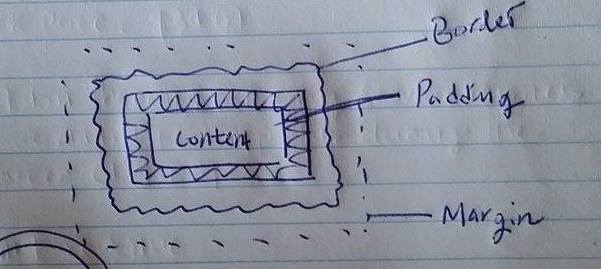 Border
Padding
content
Margin